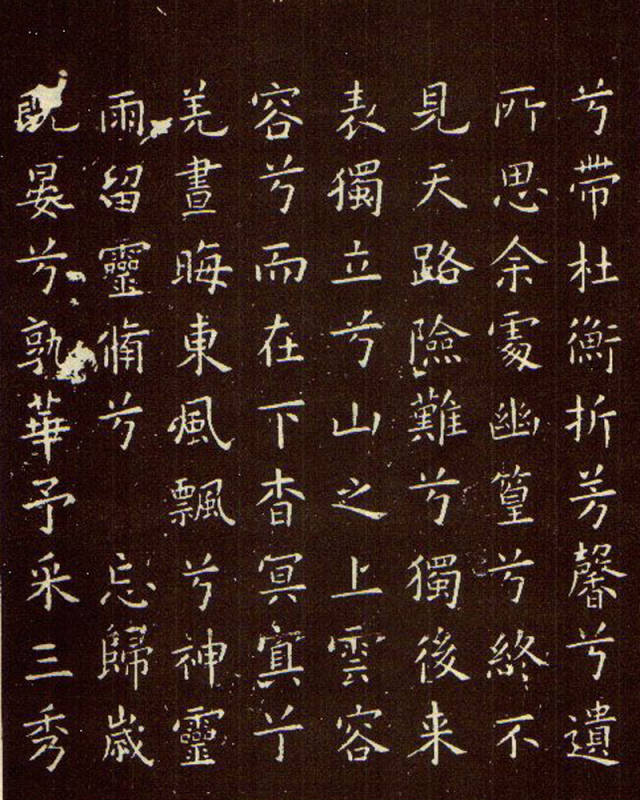 兮帶杜衡折芳馨兮遺
所思余處幽篁兮終不
見天路險難兮獨後来
表獨立兮山之上雲容
容兮而在下杳冥冥兮
羌晝晦東風飄兮神靈
雨留靈脩兮忘歸歲
既晏兮孰華予采三秀